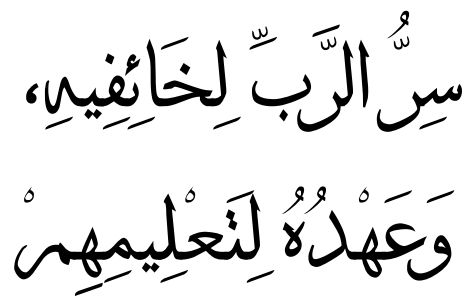 سِرُّ الرَّبِّ لِخَائِفِيهِ،
وَعَهْدُهُ لِتَعْلِيمِهِمْ